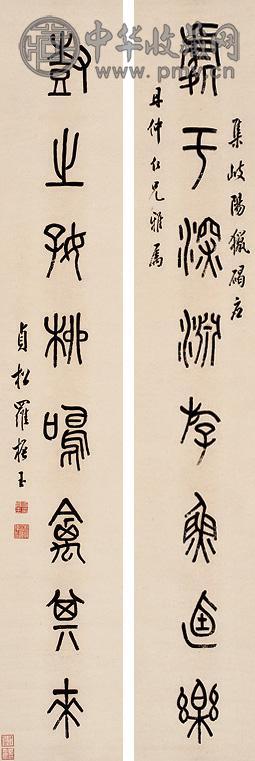 中华收藏网
集岐陽獵碣字
于深淵存魚樂
仲仁兄雅属
尌之好柳鳴禽其來
貞松羅振玉